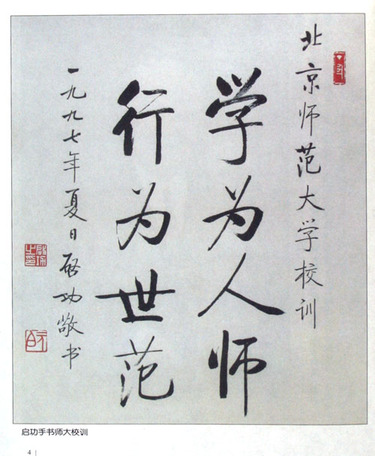 北京师范大学校训
学为人师
行为世范
一九九七年夏日启功敬书
启功手书师大校训
4